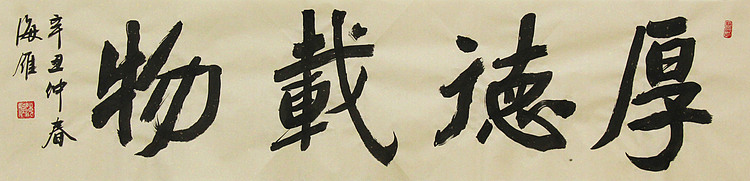 厚德載物
辛丑仲春
海雁